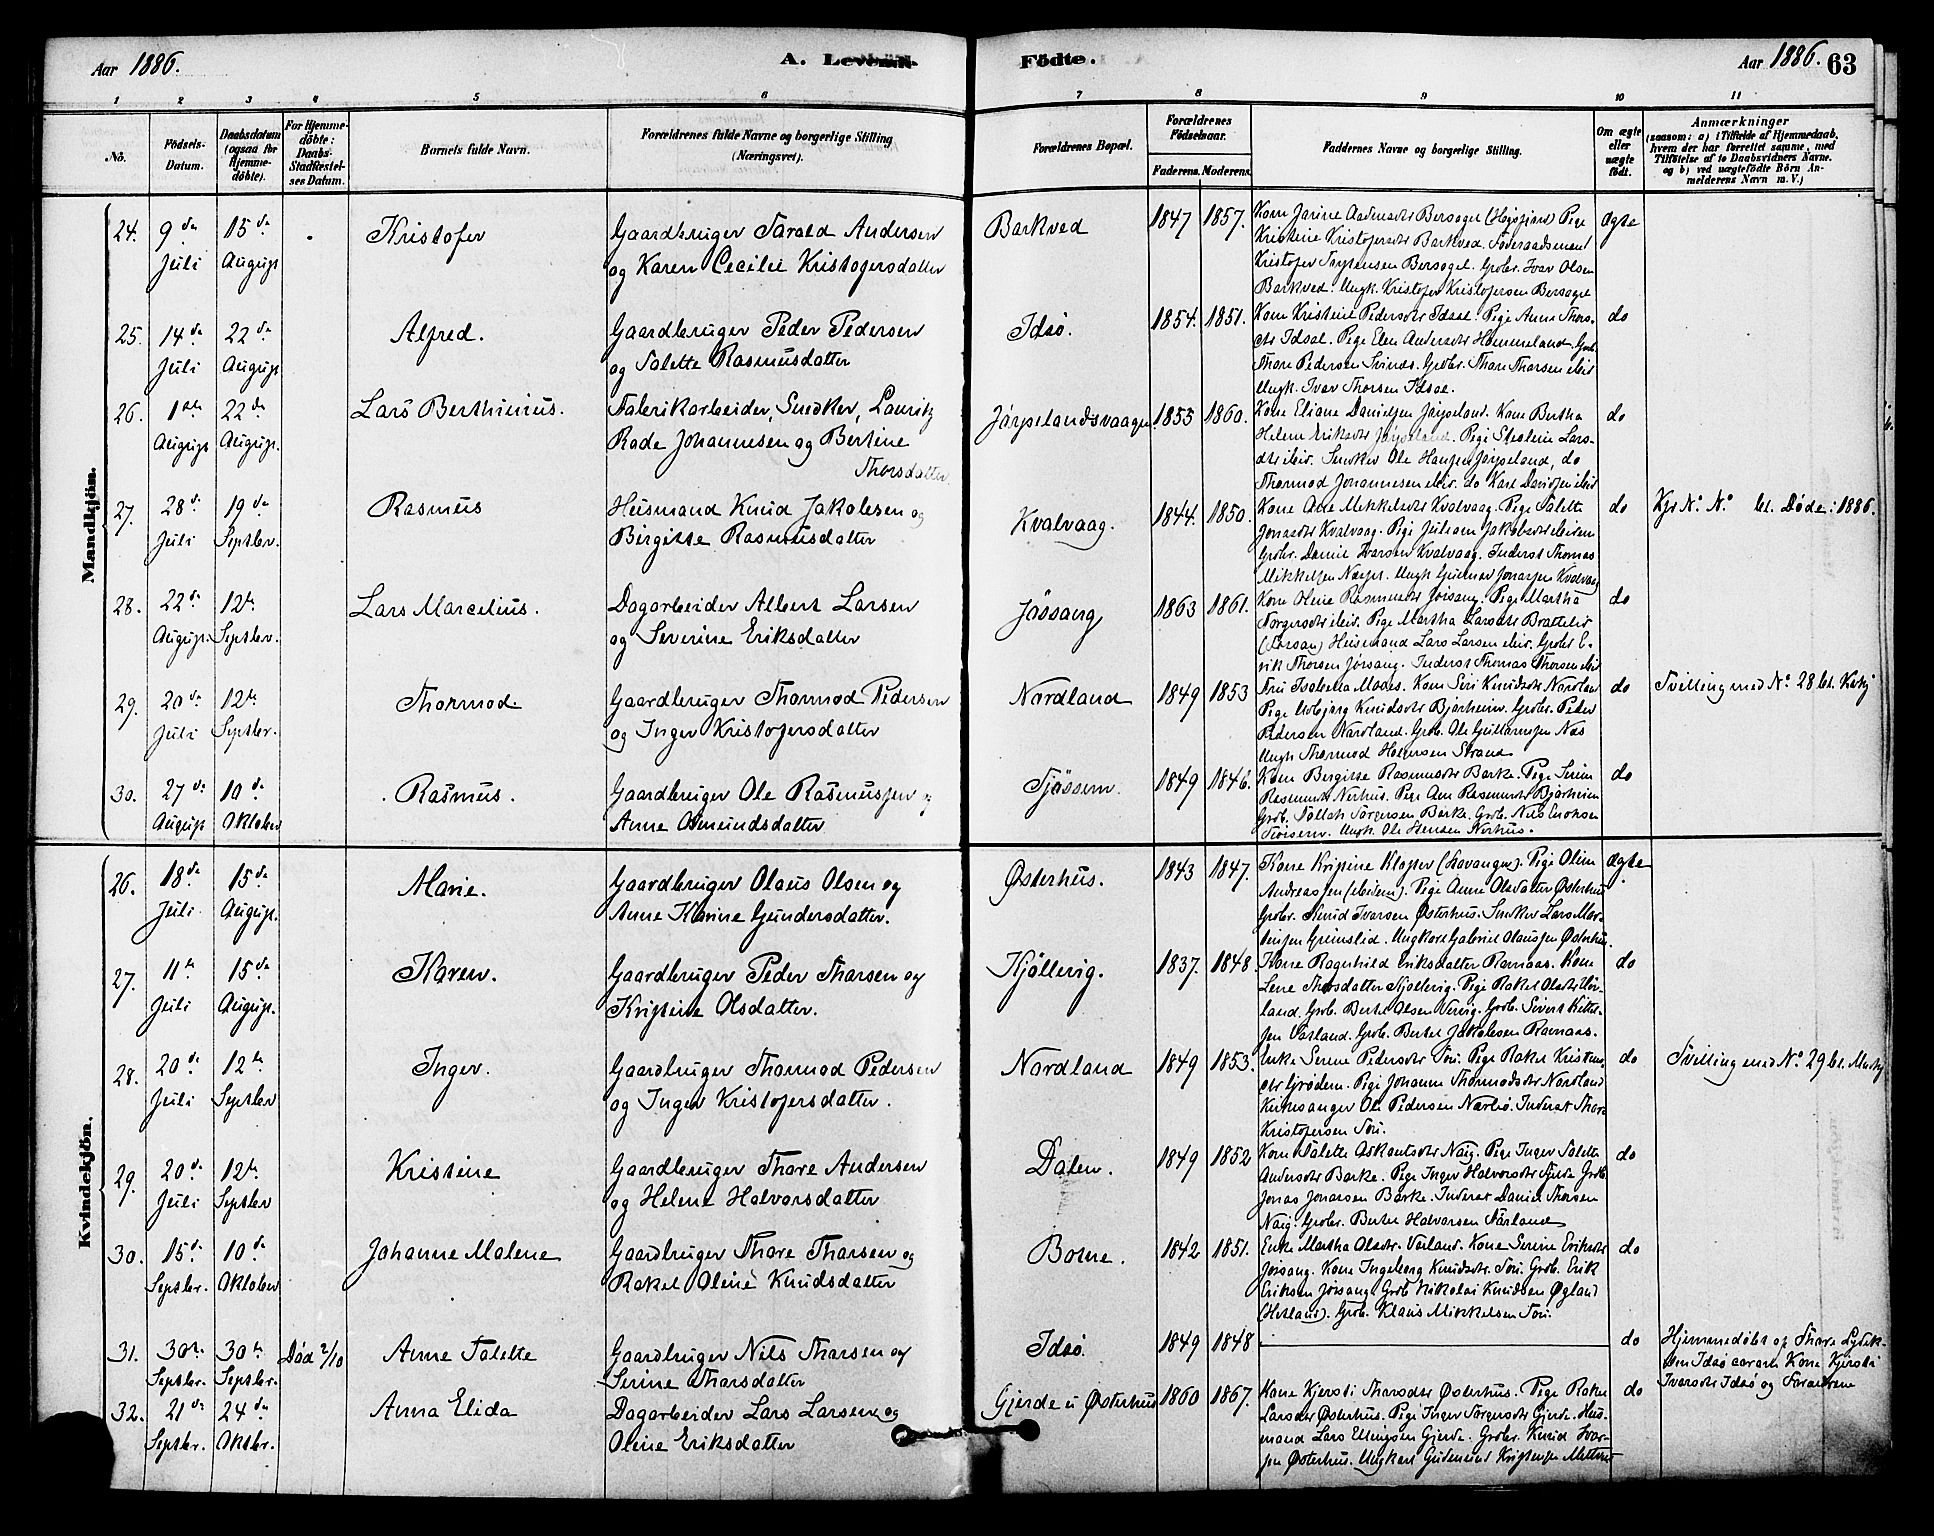 Aar 1886.
A. Levende
Födte.
Aar 1886.
63
1 2 3 4 5 6 7 8 9 10 11
No.
Födsels-
Datum.
Daabsdatum
(ogsaa for
Hjemme-
döbte).
For Hjemme-
döbte:
Daabs-
Stadfæstel-
ses Datum.
Barnets fulde Navn.
Forældrenes fulde Navne og borgerlige Stilling
(Næringsvei).
Forældrenes Bopæl.
Forældrenes
Födselsaar.
Faderens. Moderens.
Faddernes Navne og borgerlige Stilling.
Om ægte
eller
uægte
födt.
Anmærkninger
(saasom: a) i Tilfælde af Hjemmedaab,
hvem der har forrettet samme, med
Tilföielse af to Daabsvidners Navne.
og b) ved uægtefödte Börn An-
melderens Navn m. V.)
Mandkjön.
24. 9de Juli
15de August
Kristofer
Gaardbruger Tarald Andersen
og Karen Cecilie Kristofersdatter
Barkved
1847 1857.
Kristine Kristofersdtr Barkved. Föderaadsmand
Barkved. Ungk. Kristofer Kristofersen Bersaget
Ægte
25. 14de Juli
22de August
Alfred.
Gaardbruger Peder Pedersen
og Talette Rasmusdatter
Idsö.
1854. 1851.
Kone Kristine Pedersdtr Idsal. Pige Anna Thors-
dtr Idsal. Pige Elen Andersdtr Hommeland. Grb.
Ungk. Ivar Thorsen Idsal.
do
26. 1ste August
22de August.
Lars Berthinius.
Fabrikarbeider, Snedker, Lauritz
Rade Johannesen og Bertine
Thorsdatter.
Jörpelandsvaagen
1855 1860.
Kone Eliane Danielsen Jörpeland. Kone Bertha
Helene Eriksdtr Jörpeland. Pige
Snedker Ole Hansen Jörpeland, do
Thormod Johannesen ibid. do Karl Davidsen ibid
do
27. 28de Juli
19de Septbr.
Rasmus
Husmand Knud Jakobsen og
Birgitte Rasmusdatter
Kvalvaag.
1844. 1850.
Kone Ane Mikkelsdtr Kvalvaag. Pige Talette
Jonasdtr Kvalvaag. Pige Juliane Jakobsdtr ibidem
Grbr. Daniel Ivarsen Kvalvaag. Inderst Thomas
Mikkelsen Ungk Gudmund Jonassen Kvalvaag
do
No. bl. Døde: 1886.
28. 22de August.
12te Septbr.
Lars Marcelius.
Dagarbeider Albert Larsen
og Severine Eriksdatter
Jössang
1863 1861.
Kone Oline Rasmusdtr Jörsang. Pige Martha
Torgersdtr ibid. Pige Martha Larsdtr Brattelid
Husmand Lars Larsen ibid. Grbr E-
rik Thorsen Jörsang. Inderst Thomas Thorsen ibid
do
29. 20de Juli
12te Septbr.
Thormod.
Gaardbruger Thormod Pedersen
og Inger Kristofersdatter
Nordland
1849 1853
Fru Isabella Maaes. Kone Siri Knudsdtr Nordland
Pige Knudsdtr Bjørheim. Grbr. Peder
Pedersen Nordland. Grb. Ole
Ungk Thormod Halvorsen Strand
do
Tvilling med No. 28 bl. Kvkj
30. 27de August
10de Oktober
Rasmus.
Gaardbruger Ole Rasmussen og
Anne Omundsdatter
Tjössem.
1849 1846.
Kone Bergitte Rasmusdtr Barke. Pige Serine
Rasmusdtr Nerhus. Pige Ane Rasmusdtr Bjørheim
Grb. Tollak Torgersen Barke. Grb. Nils
Ungk. Ole Hansen Nerhus.
do
Kvindekjön.
26. 18de Juli.
15de August.
Marie.
Gaardbruger Olaus Olsen og
Anne Karine Gundersdatter.
Østerhus.
1843 1847.
Kone Kristine Kloster (Stavanger). Pige Oline
Andreassen (ibidem). Pige Anne Olsdatter Østerhus
Grbr. Knud Ivarsen Østerhus. Snedker Lars Mor-
tensen Grimslid. Ungkarl Gabriel Olaussen Østerhus.
Ægte
27. 11te Juli
15de August.
Karen.
Gaardbruger Peder Tharsen og
Kristine Olsdatter.
Kjöllevig.
1837. 1848.
Kone Ragnhild Eriksdatter Ramaas. Kone
Lene Thorsdatter Kjöllevig. Pige Rakel Olsdtr
land. Grb. Bertel Olsen Grb. Sivert Kittel-
sen Tarland. Grb. Bertel Jakobsen Ramaas.
do
28. 20de Juli
12te Septbr
Inger.
Gaardbruger Thormod Pedersen
og Inger Kristofersdatter.
Nordland
1849 1853.
Enke Serine Pedersdtr Tou. Pige Rakel Kristens-
dtr Grödem. Pige Johanne Thormodsdtr Nordland
Kirkesanger Ole Pedersen Nærbö. Inderst Thore
Kristofersen Tou.
do
Tvilling med No. 29 bl. Mandkj
29. 20de Juli
12te Septbr
Kristine
Gaardbruger Thore Andersen
og Helene Halvorsdatter
Dalen.
1849 1852
Kone Talette Askantsdtr Naig. Pige Inger Talette
Andersdtr Barke. Pige Inger Halvorsdtr Fjelde Grb.
Jonas Jonassen Barke. Inderst Daniel Thorsen
Naig. Grbr. Bertel Halvorsen Tarland
do
30. 15de Septbr.
10de Oktober
Johanne Malene
Gaardbruger Thore Tharsen og
Rakel Oline Knudsdatter
Botne.
1842 1851.
Enke Martha Olsdtr. Varland. Kone Serine Eriksdtr
Jörsang. Kone Ingeborg Knudsdtr. Tou. Grb. Erik
Eriksen Jörsang. Grb Nikolai Knudsen Øgland
(Hetland). Grb. Klaus Mikkelsen Tou.
do
31. 30te Septbr.
30te Septbr.
Död 2/10
Anne Talette
Gaardbruger Nils Tharsen og
Serine Tharsdatter
Idsö
1849 1848
do
Hjemmedöbt af Thore
Idsö Kone Kjersti
Ivarsdtr Idsö og Forældrene
32. 21de Septbr.
24de Oktbr.
Anna Elida
Dagarbeider Lars Larsen og
Oline Eriksdatter
Gjerde u Østerhus
1860 1867.
Kone Kjersti Tharsdtr Østerhus. Pige Rakel
Larsdtr Østerhus. Pige Inger Torgersdtr Gjerde. Hus-
mand Lars Ellingsen Gjerde. Grbr. Knud Ivar-
sen Østerhus. Ungkarl Gudmund Kristensen
do